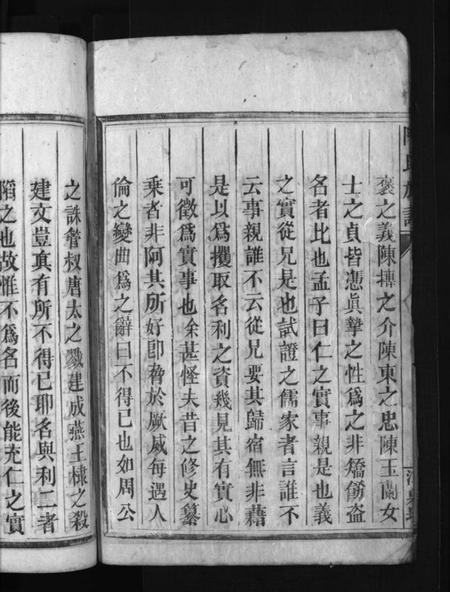 陳氏族譜
褒之義陳摶之介陳東之忠陳玉蘭女
士之貞皆憑眞摯之性爲之非矯飾盜
名者比也孟子曰仁之實事親是也義
之實從兄是也試證之儒家者言誰不
云事親誰不云從兄要其歸宿無非藉
是以爲攫取名利之資幾見其有實心
可徵爲實事也余甚怪夫昔之修史纂
乘者非阿其所好卽脅於厥威每遇人
倫之變曲爲之辭曰不得已也如周公
之誅管叔唐太之戮建成燕王棣之殺
建文豈眞有所不得已耶名與利二者
陷之也故惟不爲名而後能充仁之實